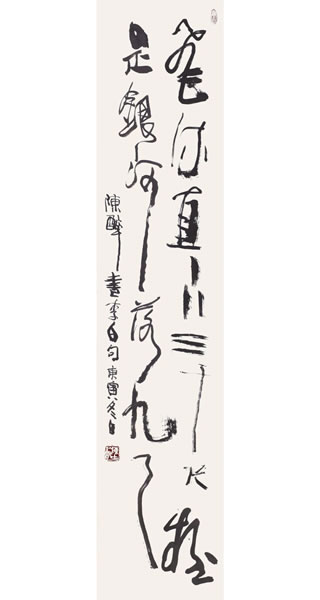 飛流直下三千尺疑
是銀河落九天
陳醉書李白句庚寅冬日